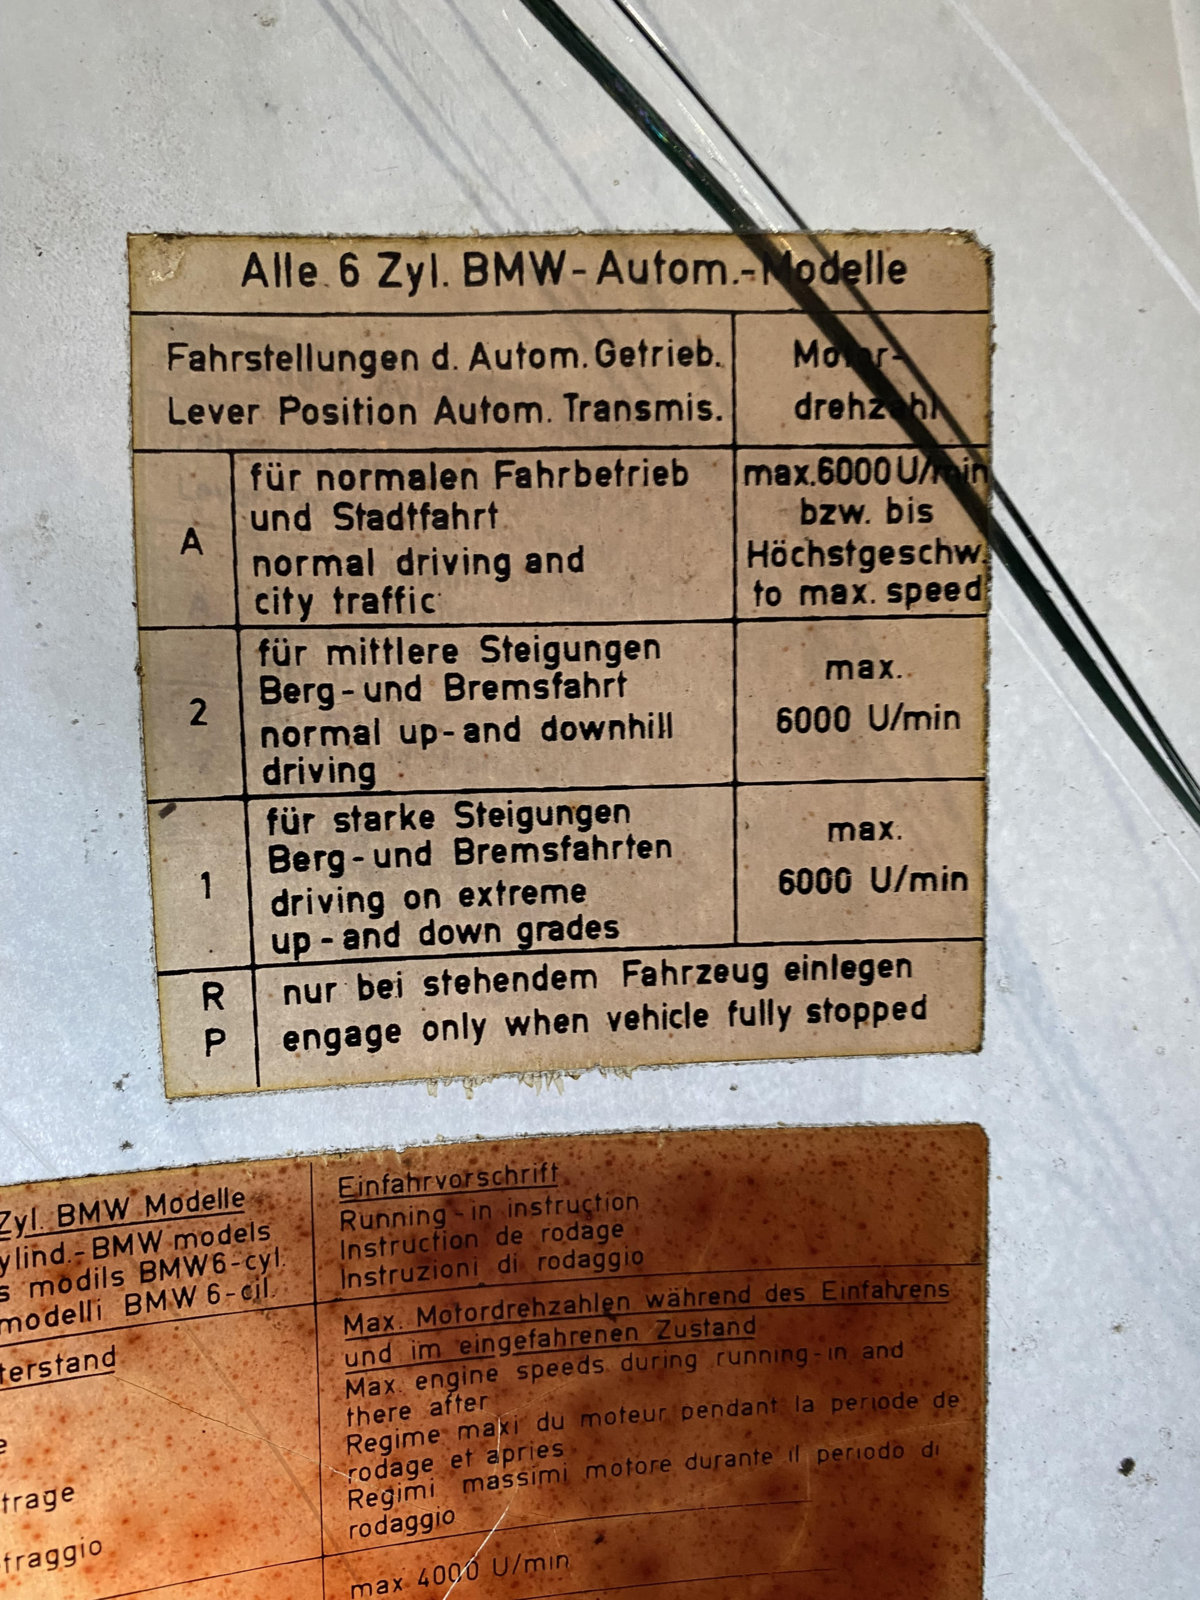 Alle 6 Zyl. BMW - Autom.-Modelle
Fahrstellungen d. Autom. Getrieb.
Lever Position Autom. Transmis.
Motor-
drehzahl
A
für normalen Fahrbetrieb
und Stadtfahrt
normal driving and
city traffic
max. 6000 U/min
bzw. bis
Höchstgeschw.
to max. speed
2
für mittlere Steigungen
Berg - und Bremsfahrt
normal up - and downhill
driving
max.
6000 U/min
1
für starke Steigungen
Berg - und Bremsfahrten
driving on extreme
up - and down grades
max.
6000 U/min
R
P
nur bei stehendem Fahrzeug einlegen
engage only when vehicle fully stopped
Zyl. BMW Modelle
ylind.-BMW models
s modils BMW 6-cyl.
modelli BMW 6-cil.
Einfahrvorschrift
Running - in instruction
Instruction de rodage
Instruzioni di rodaggio
terstand
e
trage
traggio
Max. Motordrehzahlen während des Einfahrens
und im eingefahrenen Zustand
Max. engine speeds during running-in and
there after
Regime maxi du moteur pendant la periode de
rodage et apries
Regimi massimi motore durante il periodo di
rodaggio
max 4000 U/min